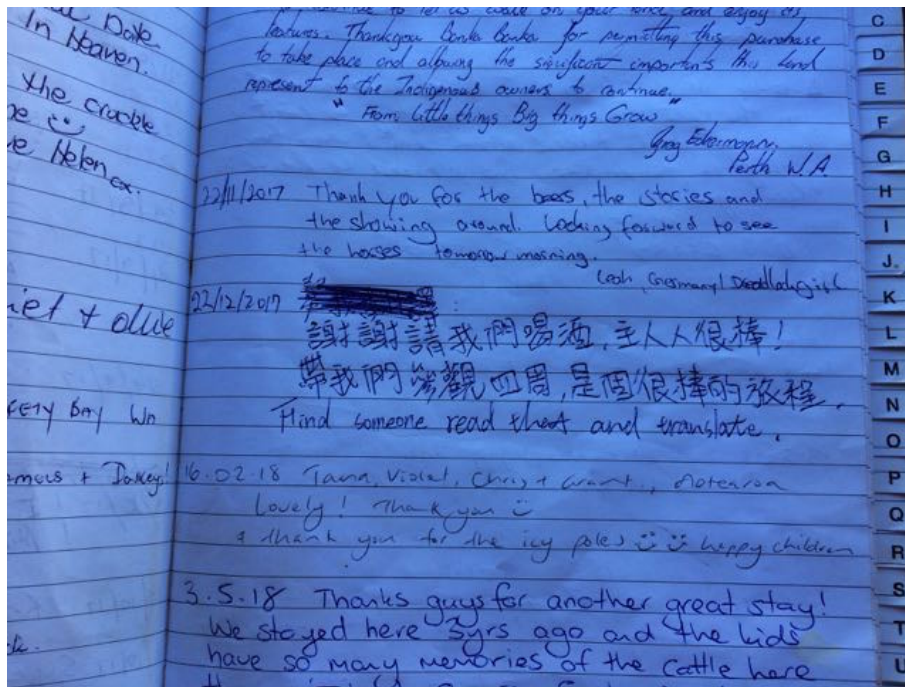 Date
In Heaven.
the crackle
Helen
iet + olive
FETY BAY WA
+ Donkey!
to let us walk on your land and enjoy its
features. Thankyou Banka Banka for permitting this purchase
to take place and allowing the significant importants this land
represent to the Indigenous owners to continue.
"From little things Big things Grow"
Greg
Perth W.A.
22/11/2017 Thank you for the beers, the stories and
the showing around. Looking forward to see
the horses tomorrow morning.
Leah, Germany
22/12/2017
謝謝請我們喝酒,主人人很棒!
帶我們參觀四周,是個很棒的旅程.
Find someone read that and translate.
16.02.18 Tama, Violet, Chris + Grant, Aotearoa
Lovely! Thank you
+ thank you for the icy poles happy children
3.5.18 Thanks guys for another great stay!
We stayed here 3yrs ago and the kids
have so many memories of the cattle here
C
D
E
F
G
H
I
J
K
L
M
N
O
P
Q
R
S
T
U